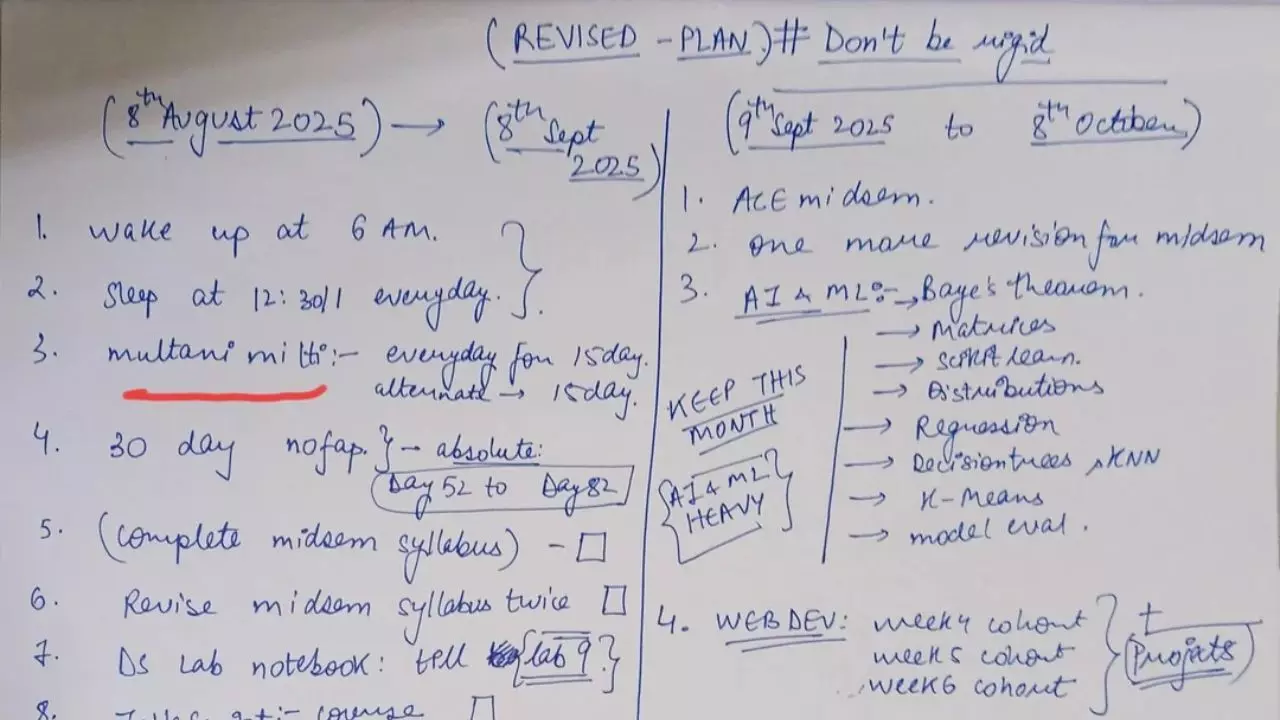 (REVISED - PLAN) # Don't be rigid
(8th August 2025) → (8th Sept 2025)
1. wake up at 6 AM.
2. Sleep at 12:30/1 everyday.
3. multani mitti:- everyday for 15 day.
alternate → 15 day.
4. 30 day nofap. } - absolute:
Day 52 to Day 82
5. (Complete midsem syllabus) -
6. Revise midsem syllabus twice
7. DS Lab notebook: till {lab 9.}
8.
(9th Sept 2025 to 8th October)
1. ACE midsem.
2. one more revision for midsem
3. AI & ML:- → Baye's theorem.
→ Matrices
→ learn.
→ Distributions
→ Regression
→ Decision trees, KNN
→ K-Means
→ model eval.
KEEP THIS
MONTH
{AI & ML
HEAVY}
4. WEB DEV: week 4 cohort
week 5 cohort
week 6 cohort
+
Projects